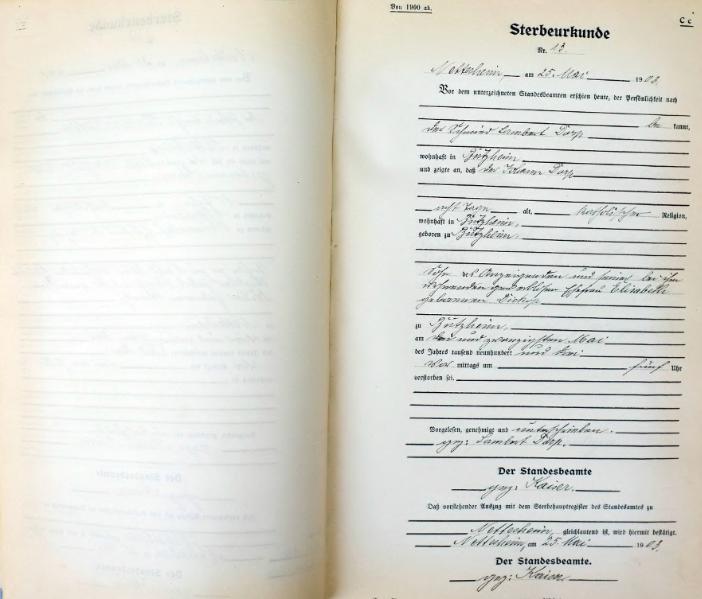 Von 1900 ab.
C c
Sterbeurkunde
Nr. 13.
am 25 Mai 1903.
Vor dem unterzeichneten Standesbeamten erschien heute, der Persönlichkeit nach
be kannt,
der Schmied Lambert Dorp
wohnhaft in
und zeigte an, daß der Johann Dorp
acht Tage alt, katholischer Religion,
wohnhaft in
geboren zu
Sohn des Anzeigenden und seiner bei ihm
wohnenden Ehefrau Elisabeth
geborenen
zu
am drei und zwanzigsten Mai
des Jahres tausend neunhundert und drei
Vor mittags um fünf Uhr
verstorben sei.
Vorgelesen, genehmigt und unterschrieben.
gez: Lambert Dorp.
Der Standesbeamte
gez: Kaiser.
Daß vorstehender Auszug mit dem Sterbehauptregister des Standesamtes zu
gleichlautend ist, wird hiermit bestätigt.
am 25. Mai 1903.
Der Standesbeamte.
gez: Kaiser